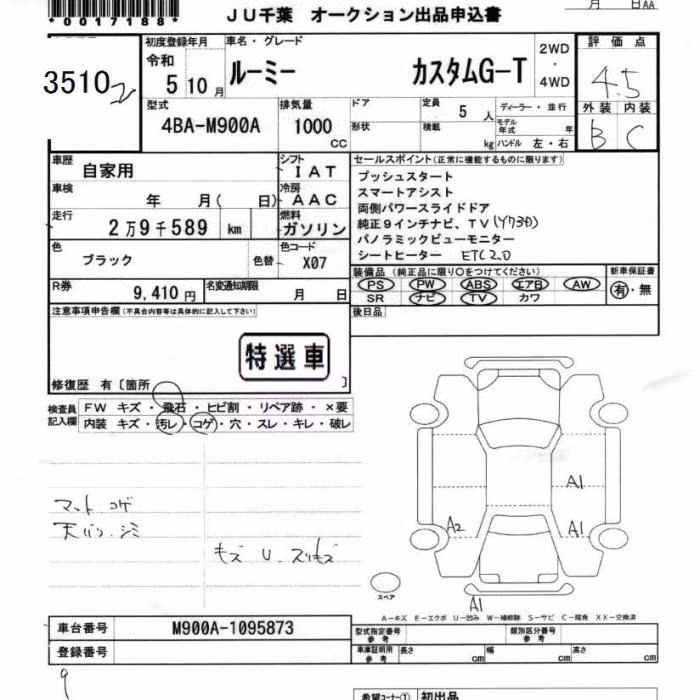 *0017188*
JU千葉 オークション出品申込書
月 日AA
3510 2
初度登録年月
令和
5 10 月
車名・グレード
ルーミー カスタムG-T
2WD
・
4WD
評価点
4.5
外装 内装
B C
型式
4BA-M900A
排気量
1000
CC
ドア
形状
定員
5 人
積載
kg
ディーラー・並行
モデル年式 年
ハンドル 左・右
車歴
自家用
シフト
IAT
車検
年 月( 日)
冷房
AAC
走行
2万9千589 km
燃料
ガソリン
色
ブラック
色替
色コード
X07
R券
9,410 円
名変通知期限
月 日
セールスポイント(正常に機能するものに限ります)
プッシュスタート
スマートアシスト
両側パワースライドドア
純正9インチナビ、TV
パノラミックビューモニター
シートヒーター ETC2.0
装備品 (純正品に限り○をつけてください)
PS PW ABS エアB AW
SR ナビ TV カワ
新車保証書
有・無
後日品
注意事項申告欄(不具合内容等は具体的に記入して下さい)
特選車
修復歴 有〔箇所 〕
検査員
記入欄
FW キズ・飛石・ヒビ割・リペア跡・×要
内装 キズ・汚レ・コゲ・穴・スレ・キレ・破レ
マット コゲ
天バリ シミ
キズ U スリキズ
A1
A2
A1
A1
スペア
A-キズ E-エクボ U-凹み W-補修跡 S-サビ C-腐食 XX-交換済
車台番号
M900A-1095873
登録番号
型式指定番号
参考
類別区分番号
参考
車庫証明用
参考
長さ cm
幅 cm
高さ cm
希望コーナー① 初出品